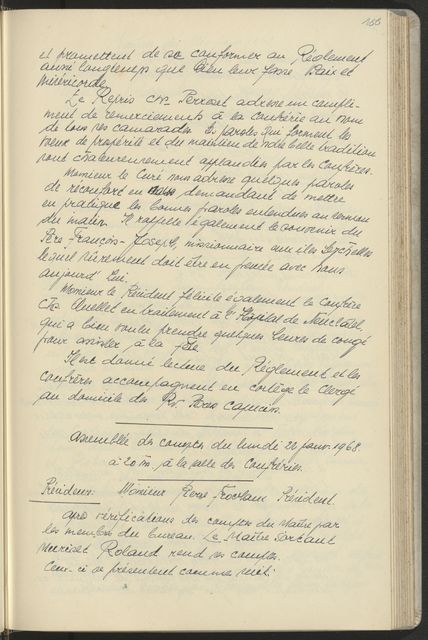 155
et promettent de se conformer au Règlement
aussi longtemps que Dieu leur fasse Paix et
Miséricorde.
Le Repris Chs Perroset adresse un compli-
ment de remerciements à la confrérie au nom
de tous ses camarades. Ses paroles qui forment les
voeux de prospérité et du maintien de notre belle tradition
sont chaleureusement applaudies par les Confrères.
Monsieur le Curé nous adresse quelques paroles
de réconfort en nous demandant de mettre
en pratique les bonnes paroles entendues au sermon
du matin. Il rappelle également le souvenir du
Père François-Joseph, missionnaire aux îles Seychelles
lequel sûrement doit être en pensée avec nous
aujourd'hui.
Monsieur le Président félicite également le confrère
Chs Quellet en traitement à l'Hôpital de
qui a bien voulu prendre quelques heures de congé
pour assister à la fête.
Il est donné lecture du Règlement et les
Confrères accompagnent en cortège le Clergé
au domicile des Rv. Pères capucins.
Assemblée des comptes du lundi 22 janv. 1968
à 20 h, à la salle des Confrères.
Présidence: Monsieur Pierre Président.
Après vérifications des comptes du Maître par
les membres du bureau. Le Maître sortant
Roland rend ses comptes.
Ceux-ci se présentent comme suit: